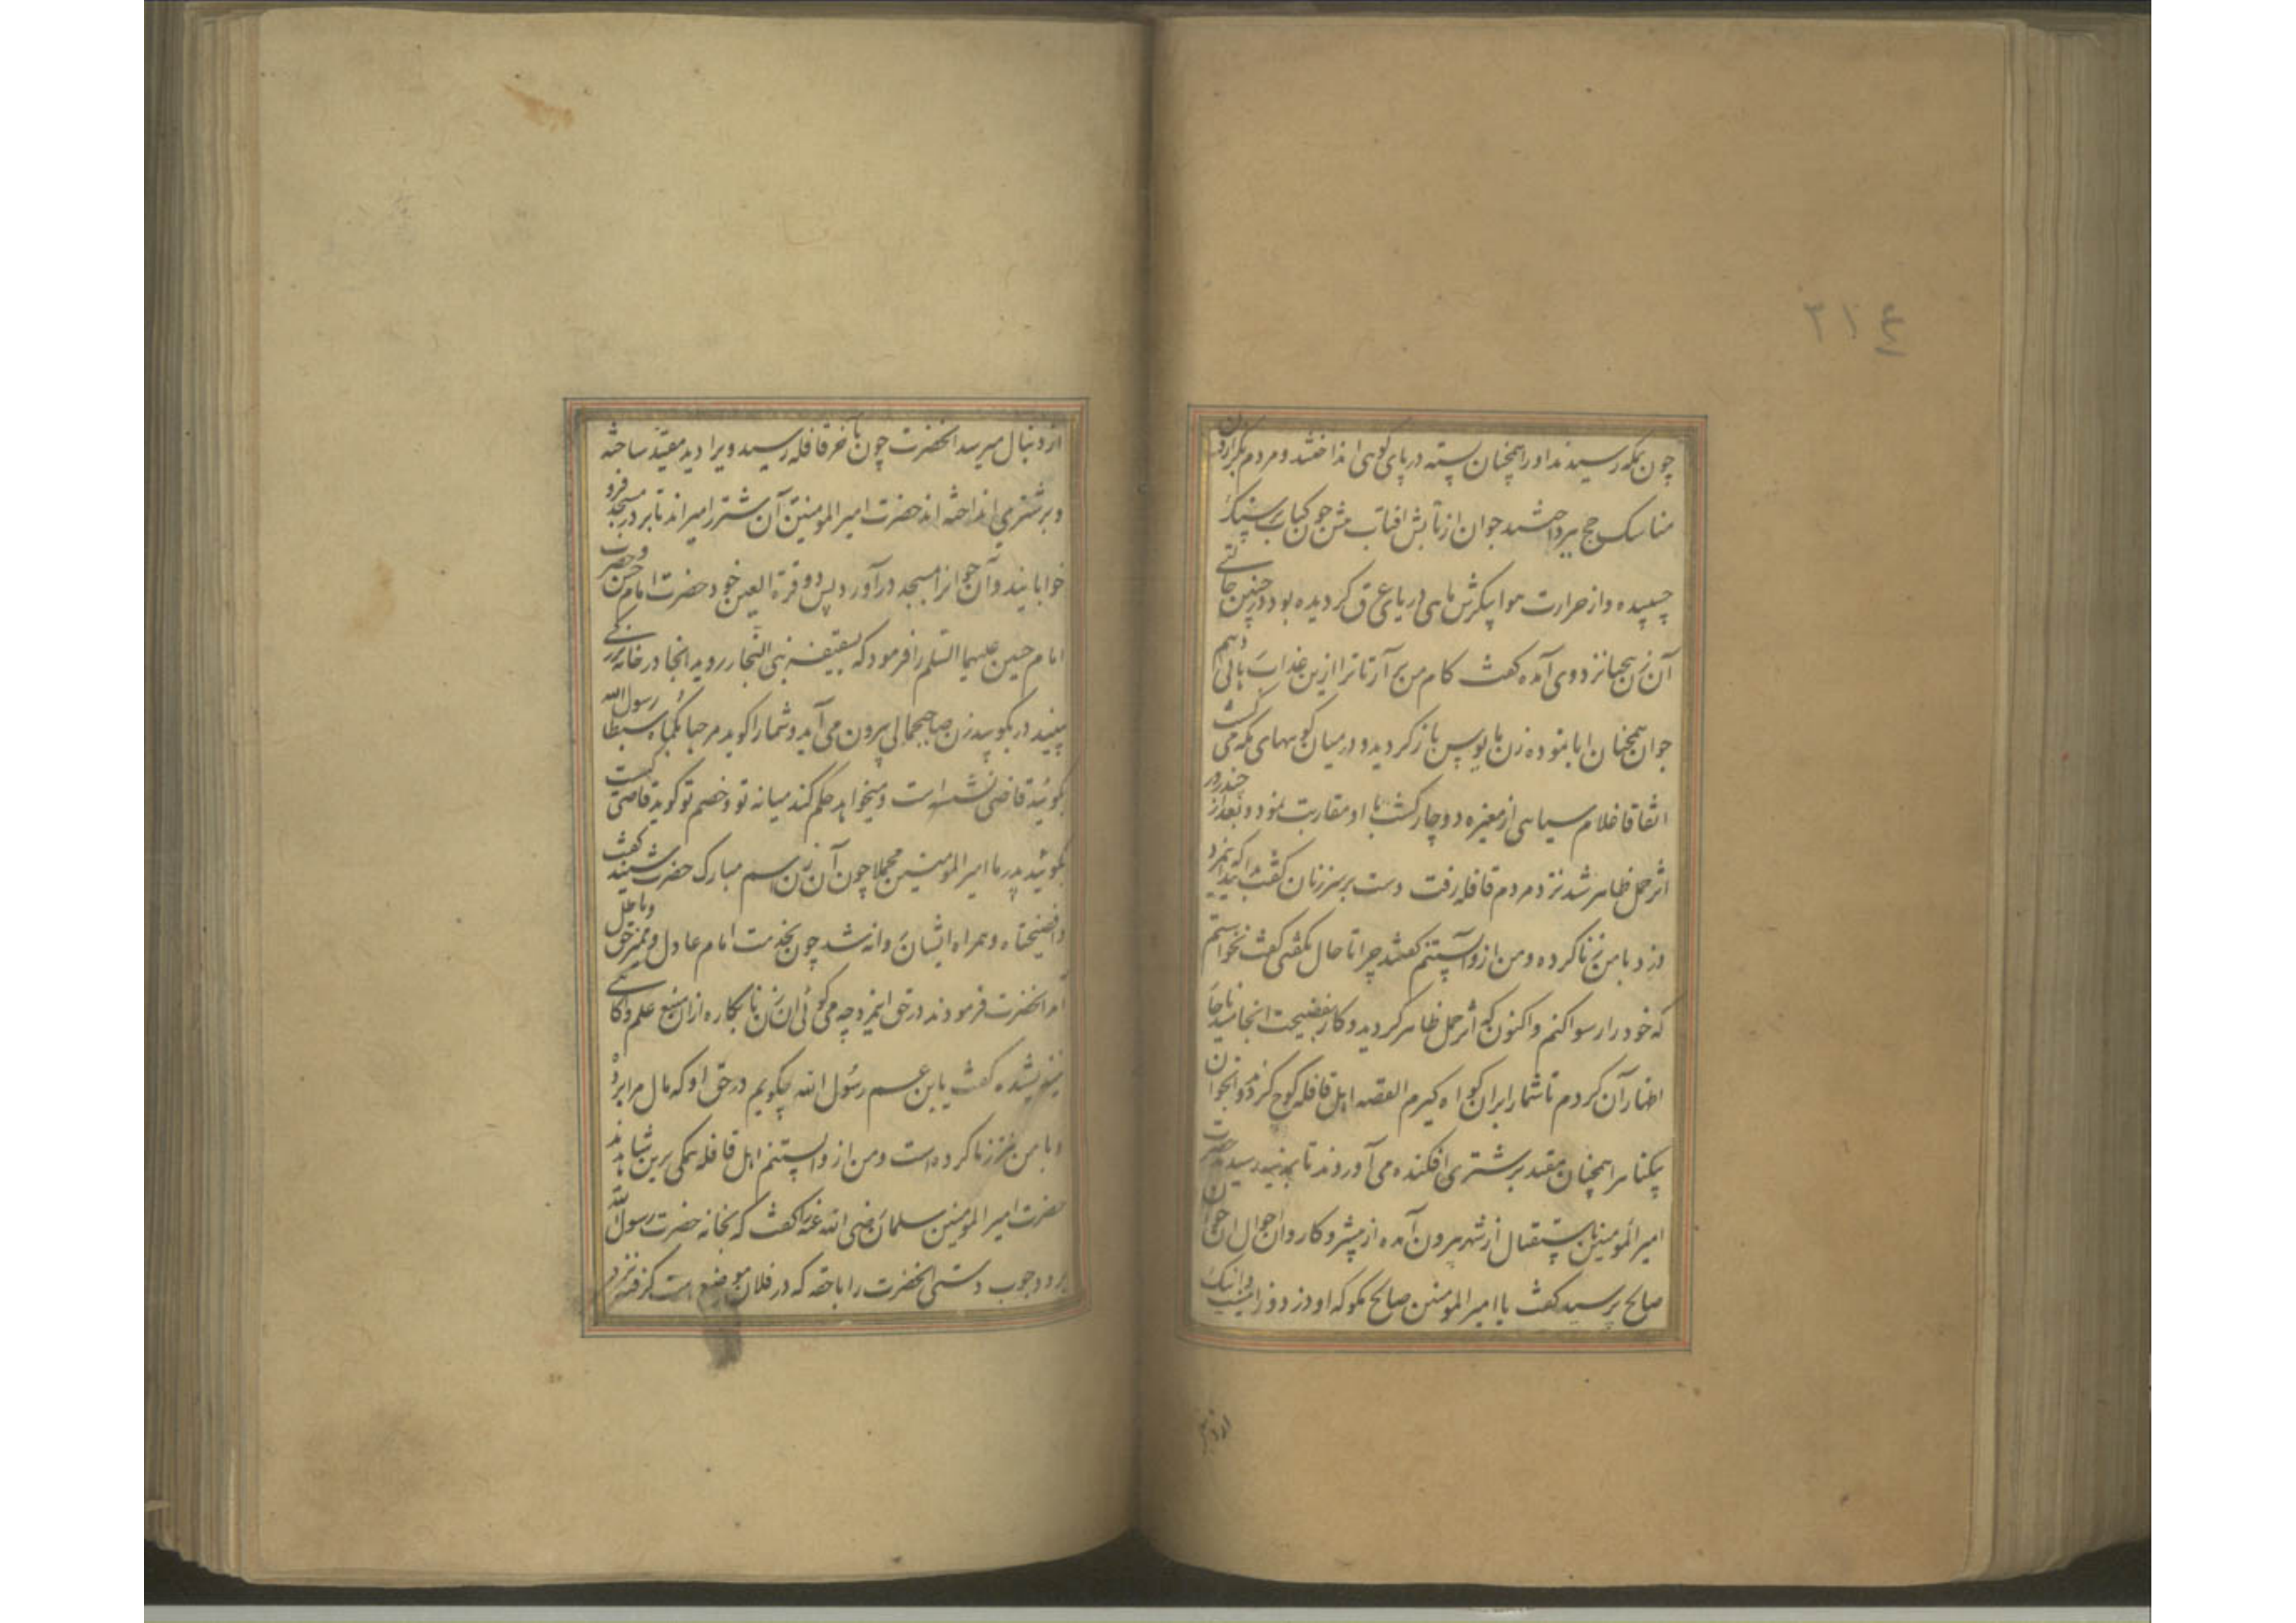 ۲۱٤
چون بمکه رسیدند او را همچنان بسته در پای کوهی انداختند و مردم بگزاردن
مناسک حج پرداختند جوان از تابش افتاب تنش چون کباب بر سنگ
چسپیده و از حرارت هوا پیکرش ماهی دریای عرق کردیده بود در چنین حالتی
آن زن بیحیا نزد وی آمده کفت کام من بر آر تا ترا ازین عذاب رهائی دهم
جوان همچنان ابا نموده زن مایوس باز کردید و در میان کوههای مکه می کشت
اتفاقا غلام سیاهی از مغیره دوچار کشت با او مقاربت نمود و بعد از چند روز
اثر حمل ظاهر شد نزد مردم قافله رفت دست بر سر زنان کفت بدانید که این مرد
دزد با من زنا کرده و من ازو آبستنم کفتند چرا تا حال نکفتی کفت نخواستم
که خود را رسوا کنم و اکنون که اثر حمل ظاهر کردید و کار بفضیحت انجامید ناچار
اظهار آن کردم تا شما را بران کواه کیرم القصه اهل قافله کوچ کردند و آنجوان
بیکناه را همچنان مقید بر شتری افکنده می آوردند تا بمدینه رسیدند حضرت
امیر المومنین باستقبال از شهر بیرون آمده از پیشرو کاروان احوال ان جوان
صالح پرسید کفت یا امیر المومنین صالح مکو که او دزد و زانیست و اینک
از دنبال
از دنبال میرسد انحضرت چون بآخر قافله رسید ویرا دید مقید ساخته
و بر شتری انداخته اند حضرت امیر المومنین آن شتر را میراند تا بر در مسجد فرو
خوابانید و آن جوانرا بمسجد درآورد پس دو قرة العین خود حضرت امام حسن و حضرت
امام حسین علیهما السلم را فرمود که بسقیفه بنی النجار روید انجا در خانه بزرکی
بینید در بکوبید زن صاحبجمالی بیرون می آید و شما را کوید مرحبا بکما یا سبطا رسول الله
بکوئید قاضی نشسته است و میخواهد حکم کند میانه تو و خصم تو کوید قاضی کیست
بکوئید پدر ما امیر المومنین مجملا چون آن زن اسم مبارک حضرت شنید کفت
وافضیحتاه و همراه ایشان روانه شد چون بخدمت امام عادل و ممیز حق و باطل
آمد انحضرت فرمودند در حق اینمرد چه می کوئی ان زن نابکاره از ان منبع علم و آکاهی
کفت یا بن عم رسول الله چکویم در حق او که مال مرا برده
و با من نیز زنا کرده است و من ازو آبستنم اهل قافله همکی برین شاهدند
حضرت امیر المومنین سلمان رضی الله عنه را کفت که بخانه حضرت رسول الله
برو و چوب دستی انحضرت را با حقه که در فلان موضع است کرفته نزد